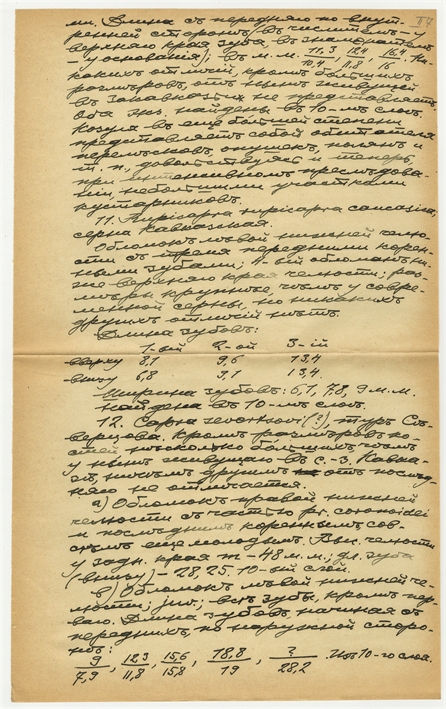 ми. Длина съ передняго по внут-
ренней сторонѣ (въ числителѣ – у
верхняго края зуба, въ знаменателѣ
– у основанія); въ м.м. 11,3/10,4, 12,4/11,8, 16,4/16. Ни-
какихъ отличій, кромѣ большихъ
размѣровъ, отъ нынѣ живущей
въ Закавказьи не представляетъ.
Оба экз. найдены въ 10-мъ слоѣ.
Козуля въ еще большей степени
представляетъ собой обитателя
перелѣсковъ, опушекъ, полянъ и
т. п., довольствуясь и теперь,
при интенсивномъ преслѣдова-
ніи, небольшими участками
кустарниковъ.
11. Rupicapra rupicapra caucasica,
серна Кавказская.
Обломокъ лѣвой нижней челю-
сти съ тремя передними корен-
ными зубами, 4-ый обломанъ ни-
же верхняго края челюсти; раз-
мѣры крупнѣе, чѣмъ у совре-
менной серны, но никакихъ
другихъ отличій нѣтъ.
Длина зубовъ:
1-ый 2-ой 3-ій
вверху 8,1 9,6 13,4
внизу 6,8 9,1 13,4.
Ширина зубовъ: 6,1, 7,8, 9 м.м.
Найдена въ 10-мъ слоѣ.
12. Capra severtzovi (?), туръ Сѣ-
верцова. Кромѣ размѣровъ ко-
стей нѣсколько большихъ чѣмъ
у нынѣ живущаго въ С.-З. Кавка-
зѣ, ничѣмъ другимъ отъ послѣд-
няго не отличается.
а) Обломокъ правой нижней
челюсти съ частью pr. coronoidei
и послѣднимъ кореннымъ сов-
сѣмъ еще молодымъ. Выс. челюсти
у задн. края m – 48 м.м.; дл. зуба
(внизу) – 28,25. 10-ый слой.
в) Обломокъ лѣвой нижней че-
люсти; juv.; всѣ зубы, кромѣ пер-
ваго. Длина зубовъ, начиная съ
переднихъ, по наружной сторо-
нѣ:
9/7,9, 12,3/11,8, 15,6/15,8, 18,8/19, ?/28,2. Изъ 10-го слоя.